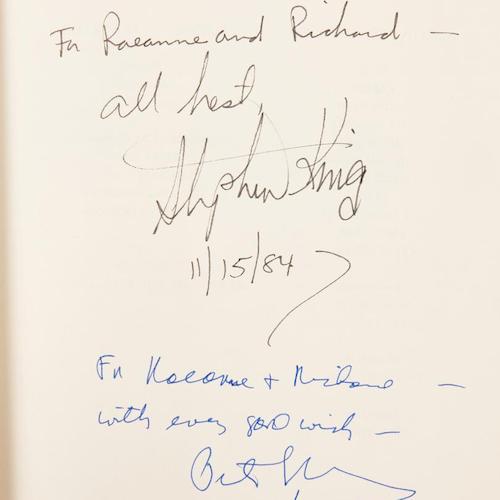 For Roeanne and Richard —
all best,
Stephen King
11/15/84
For Roeanne + Richard —
with every good wish —